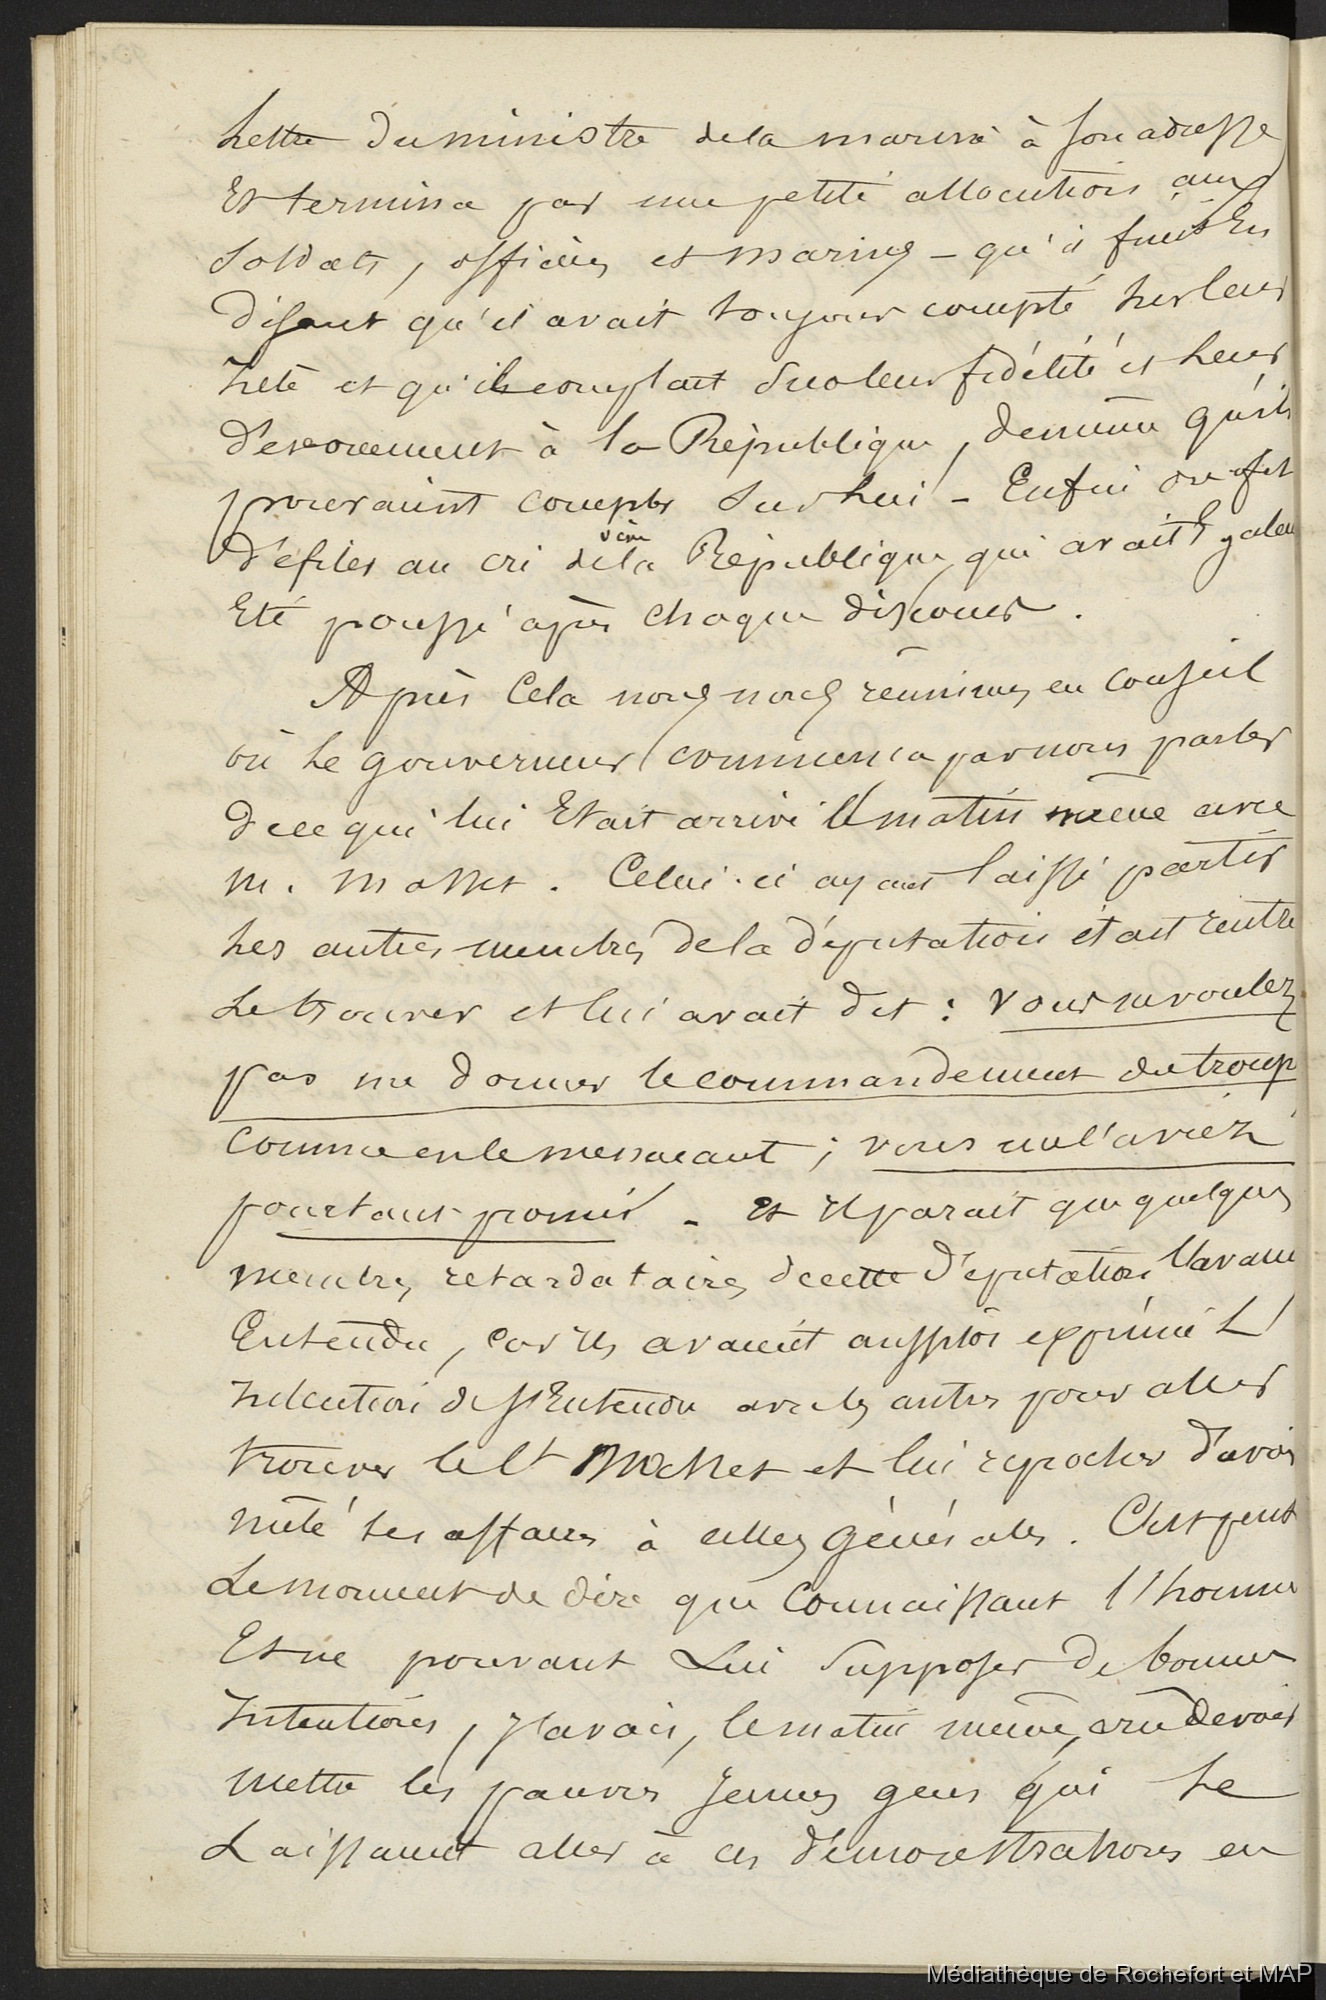 Lettre du ministre de la marine à son adresse
Et termina par une petite allocution aux
soldats, officiers et marins – qu'il finit En
disant qu'il avait toujours compté sur leur
zele et qu'il comptait sur leur fidélité et leur
dévouement à la République, de même qu'ils
pouvaient compter sur Lui – Enfin on fit
défiler au cri de vive la République qui avait Egalem
Eté poussé après chaque discours.
Après Cela nous nous réunimes en conseil
où le gouverneur commenca par nous parler
de ce qui lui Etait arrivé le matin même avec
m. Masset. Celui-ci ayant laissé partir
les autres membres de la députation était rentré
le trouver et lui avait dit : vous ne voulez
pas me donner le commandement du troup
comme en le menacant ; vous me l'aviez
pourtant promis – Et il parait que quelques
membres retardataires de cette députation l'avaient
Entendu, car ils avaient aussitôt exprimé L'
intention de s'Entendre avec les autres pour aller
trouver le Lt Masset et lui reprocher d'avoir
mêlé ses affaires à celles générales. C'est peut
Le moment de dire que connaissant l'homme
Et ne pouvant Lui supposer de bonnes
intentions, j'avais, le matin même, cru devoir
mettre les pauvres jeunes gens qui se
Laissaient aller à ces démonstrations en
Médiathèque de Rochefort et MAP